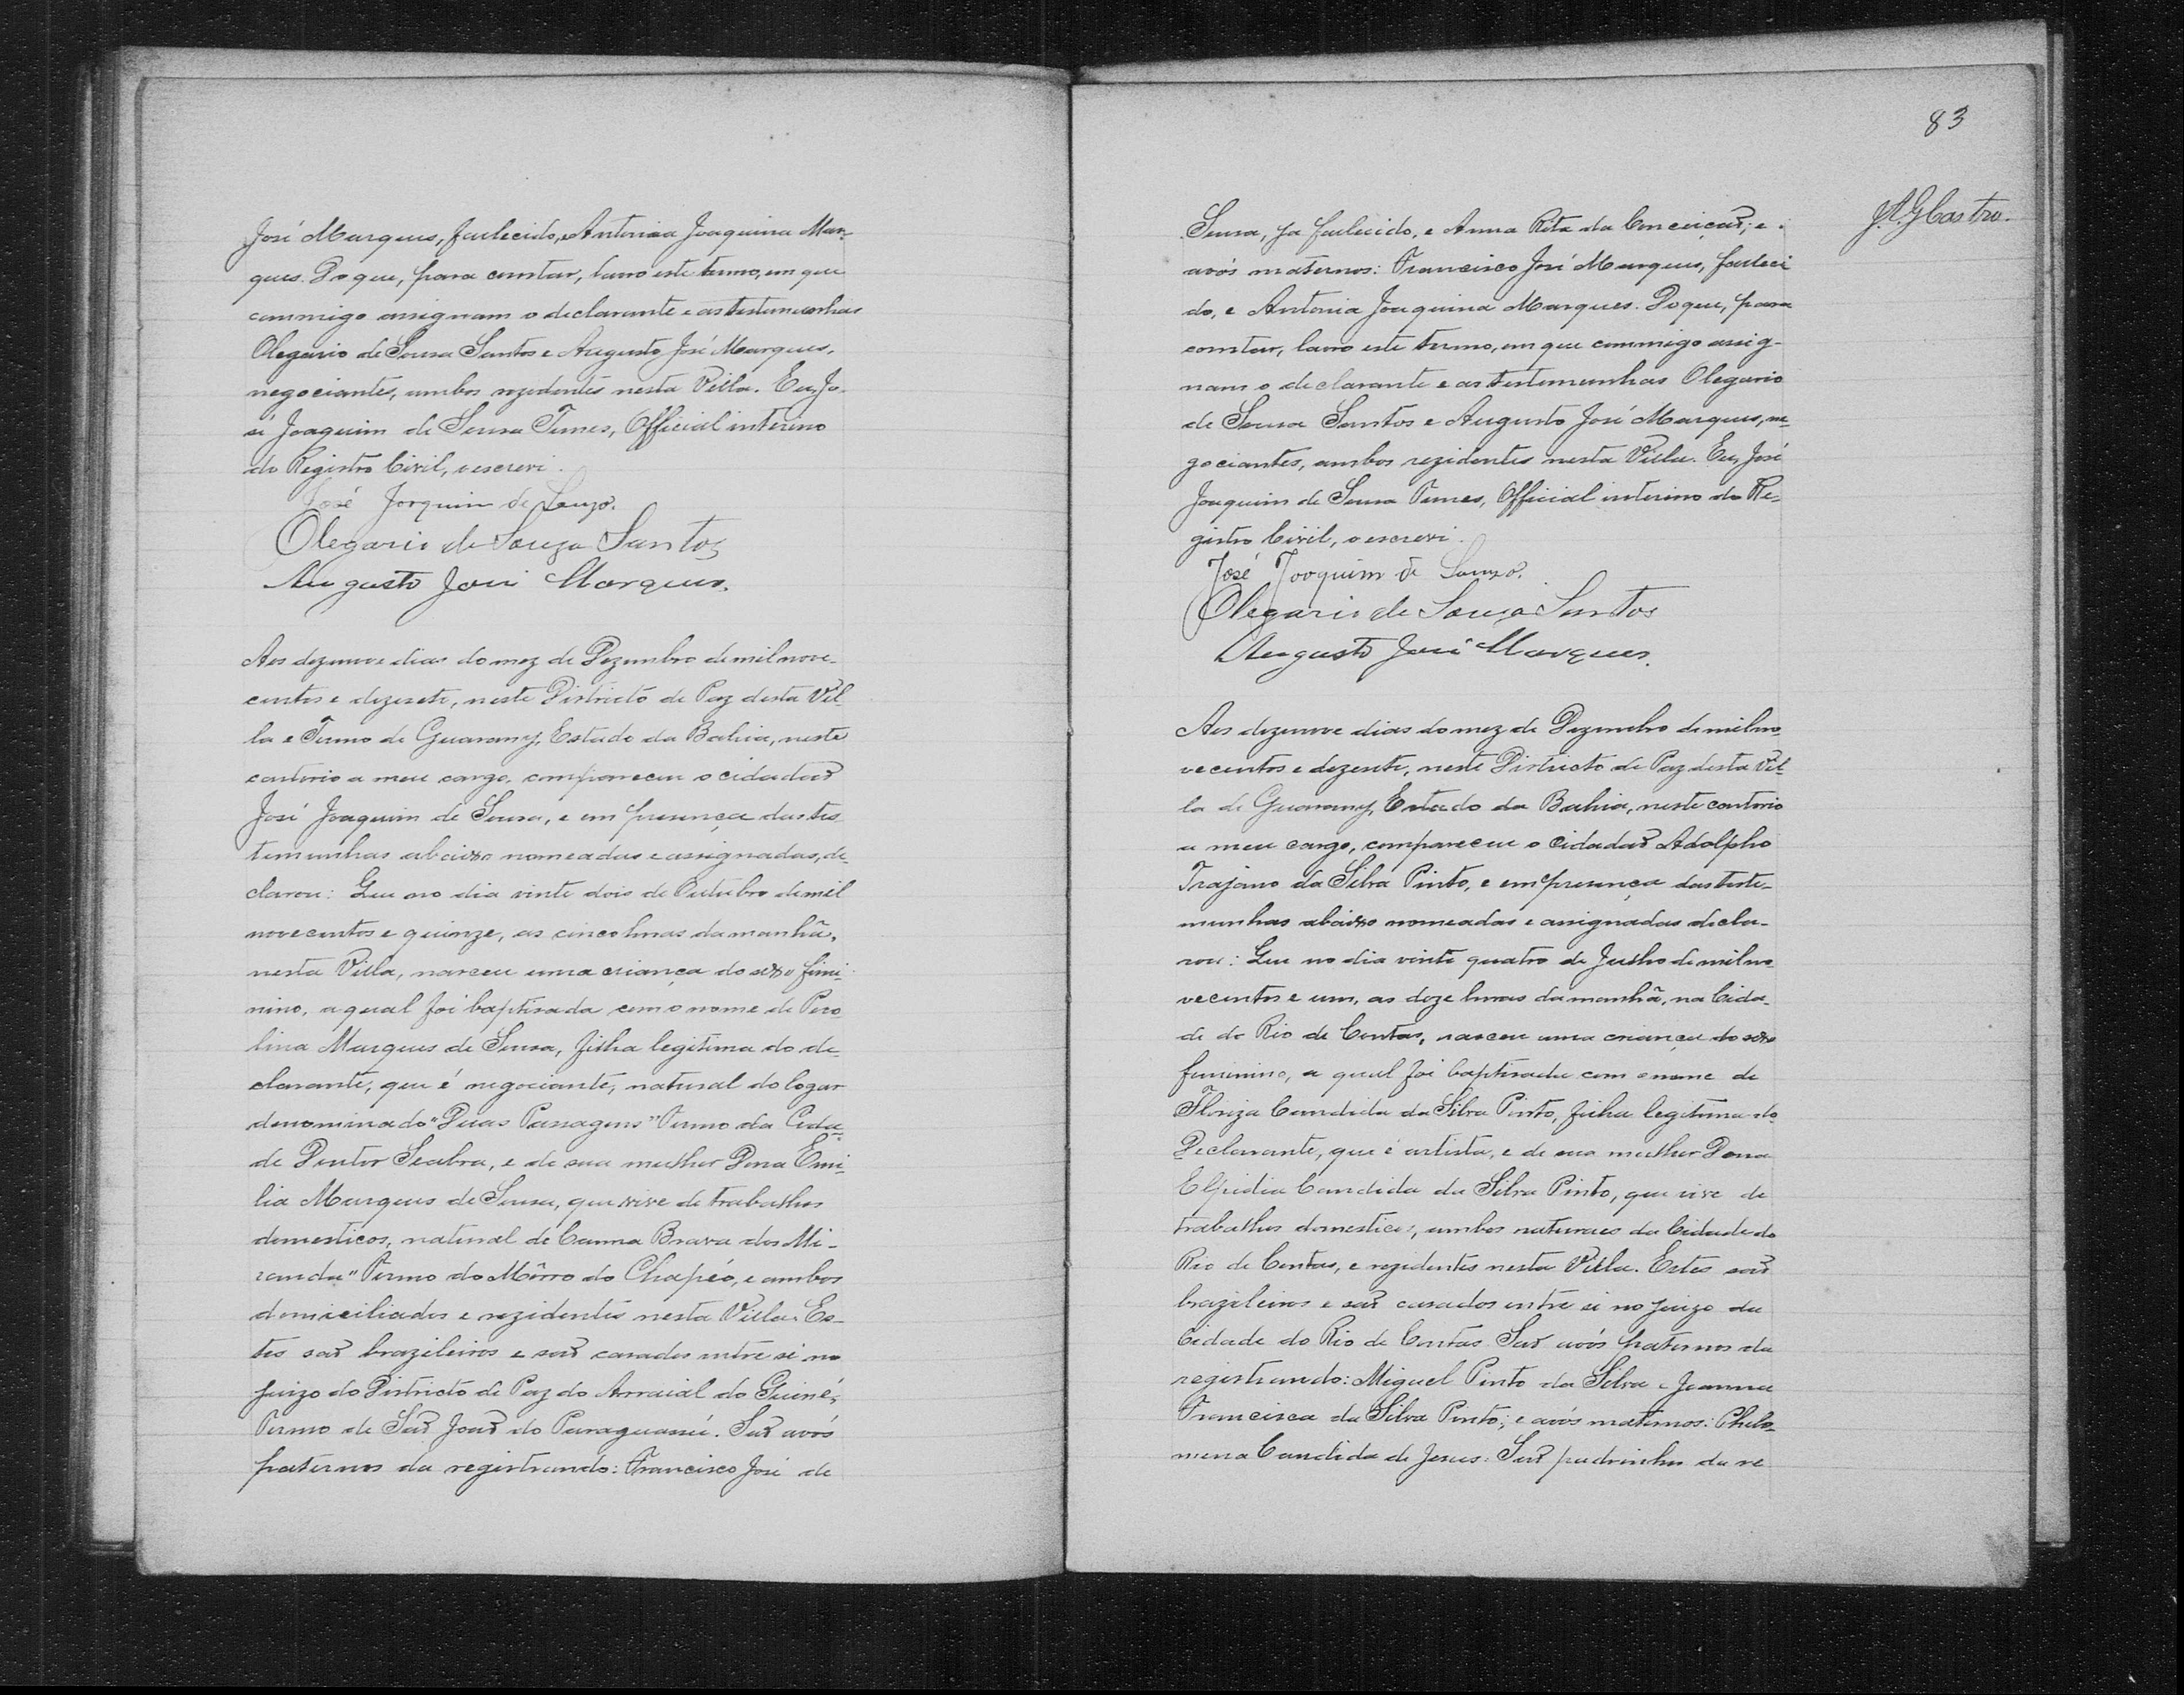 José Marques, fallecido, e Antonia Joaquina Mar-
ques. Do que, para constar, lavro este termo, em que
commigo assignam o declarante e as testemunhas
Olegario de Sousa Santos e Augusto José Marques,
negociantes, ambos rezidentes nesta Villa. Eu, Jo-
sé Joaquim de Sousa Tunes, Official interino
do Registro Civil, o escrevi.
José Joaquim de Souza.
Olegario de Souza Santos
Augusto José Marques.
Aos dezenove dias do mez de Dezembro de mil nove-
centos e dezesete, neste Districto de Paz desta Vil-
la e Termo de Guarany, Estado da Bahia, neste
cartorio a meu cargo, compareceu o cidadão
José Joaquim de Sousa, e em presença das tes-
temunhas abaixo nomeadas e assignadas, de-
clarou: Que no dia vinte dois de Outubro de mil
novecentos e quinze, as cinco horas da manhã,
nesta Villa, nasceu uma criança do sexo femi-
nino, a qual foi baptisada com o nome de
lina Marques de Sousa, filha legitima do de-
clarante, que é negociante, natural do logar
denominado "Duas Passagens" Termo da Cida-
de Doutor Seabra, e de sua mulher Dona Emi-
lia Marques de Sousa, que vive de trabalhos
domesticos, natural de Canna Brava dos Mi-
randa" Termo do Môrro do Chapéo, e ambos
domiciliados e rezidentes nesta Villa. Es-
tes são brazileiros e são casados entre si no
juizo do Districto de Paz do Arraial do Guiné,
Termo de São João do Paraguassú. São avós
paternos da registrando: Francisco José de
83
J.A.G Castro.
Sousa, ja fallecido, e Anna Rita da Conceição; e
avós maternos: Francisco José Marques, falleci
do, e Antonia Joaquina Marques. Do que, para
constar, lavro este termo, em que commigo assig-
nam o declarante e as testemunhas Olegario
de Sousa Santos e Augusto José Marques, ne-
gociantes, ambos rezidentes nesta Villa. Eu, José
Joaquim de Sousa Tunes, Official interino do Re-
gistro Civil, o escrevi.
José Joaquim de Souza.
Olegario de Souza Santos
Augusto José Marques.
Aos dezenove dias do mez de Dezembro de mil no-
vecentos e dezesete, neste Districto de Paz desta Vil-
la de Guarany, Estado da Bahia, neste cartorio
a meu cargo, compareceu o cidadão Adolpho
Trajano da Silva Pinto, e em presença das teste-
munhas abaixo nomeadas e assignadas decla-
rou: Que no dia vinte quatro de Julho de mil no-
vecentos e um, as doze horas da manhã, na Cida-
de do Rio de Contas, nasceu uma criança do sexo
feminino, a qual foi baptisada com o nome de
Floriza Candida da Silva Pinto, filha legitima do
Declarante, que é artista, e de sua mulher Dona
Elpidia Candida da Silva Pinto, que vive de
trabalhos domesticos, ambos naturaes da Cidade do
Rio de Contas, e rezidentes nesta Villa. Estes são
brazileiros e são casados entre si no juizo da
Cidade do Rio de Contas. São avós paternos da
registrando: Miguel Pinto da Silva e Joanna
Francisca da Silva Pinto; e avós maternos: Philo-
mena Candida de Jesus. São padrinhos da re